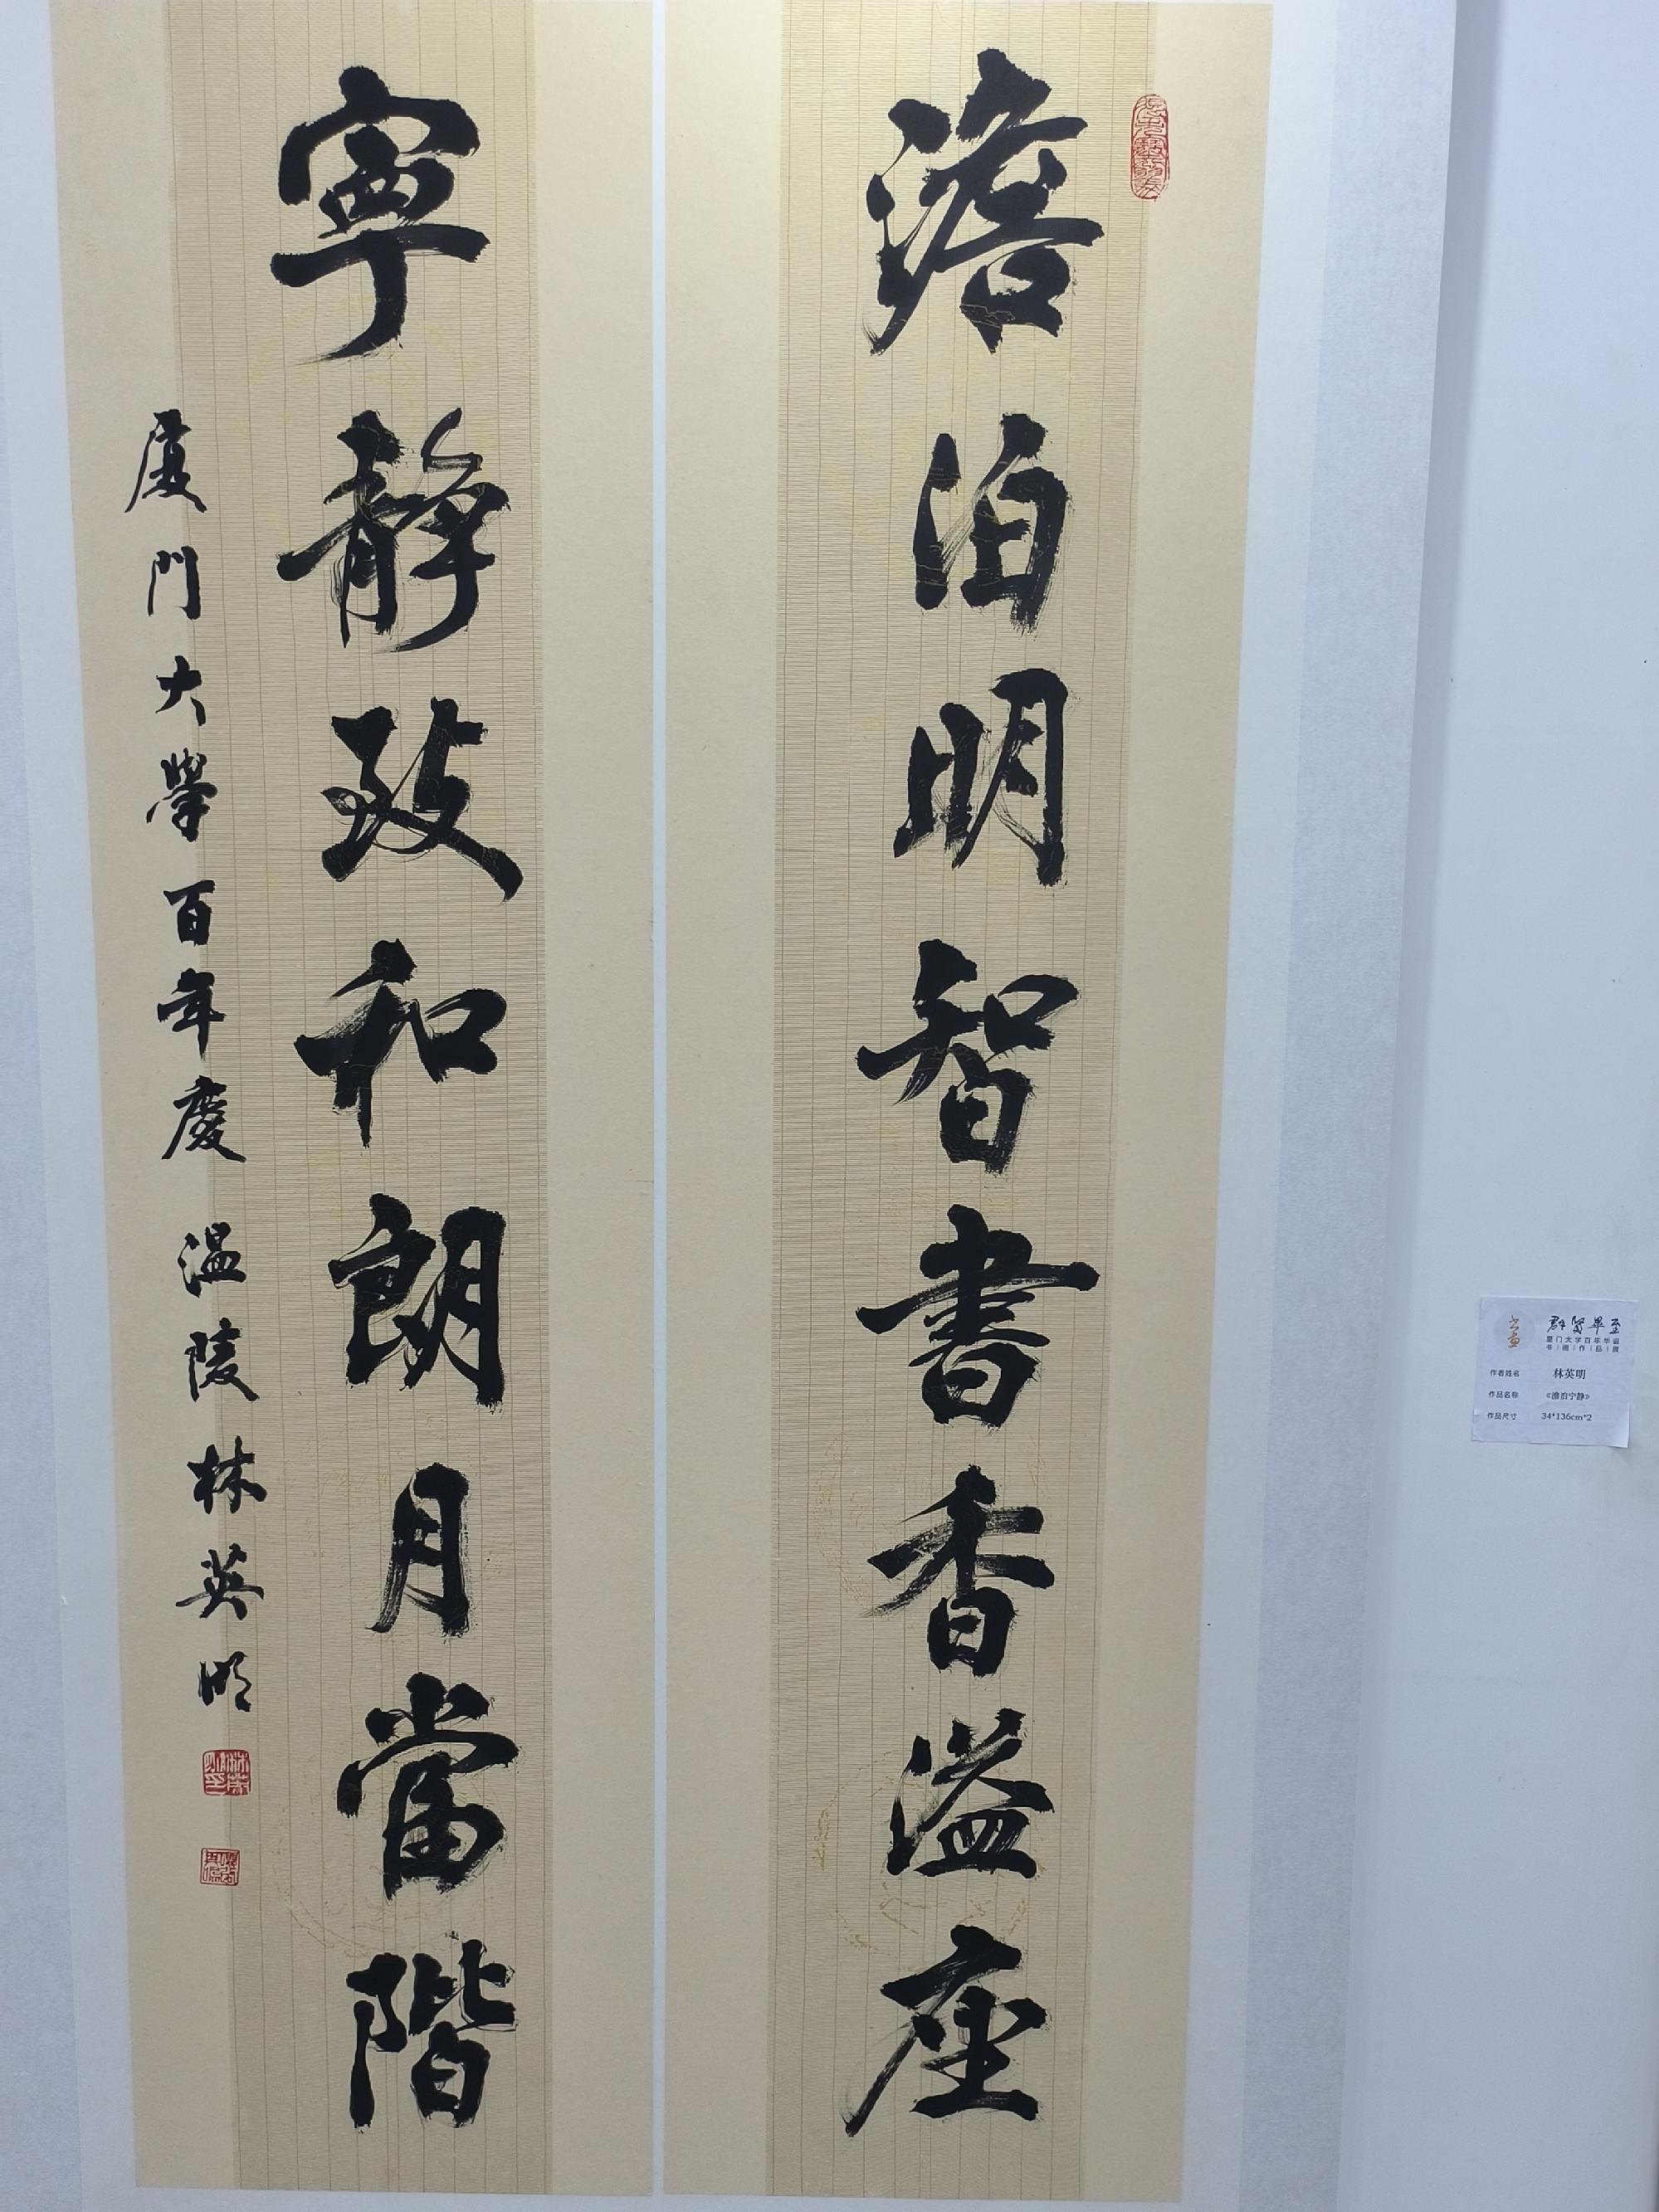 澹泊明智書香溢座
寧靜致和朗月當階
厦門大學百年慶 温陵林英明
群賢畢至
厦门大学百年华诞
书|画|作|品|展
作者姓名 林英明
作品名称 《澹泊宁静》
作品尺寸 34*136cm*2